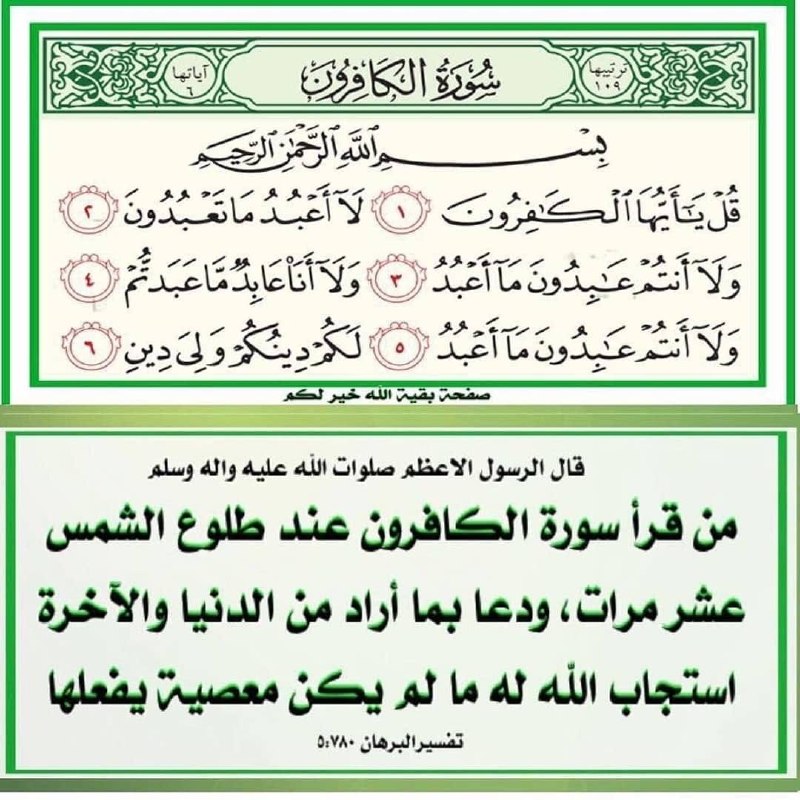 ترتيبها ١٠٩ سُورَةُ الكَافِرُون آياتها ٦
بِسْمِ اللَّهِ الرَّحْمَٰنِ الرَّحِيمِ
قُلْ يَٰٓأَيُّهَا ٱلْكَٰفِرُونَ ١ لَآ أَعْبُدُ مَا تَعْبُدُونَ ٢
وَلَآ أَنتُمْ عَٰبِدُونَ مَآ أَعْبُدُ ٣ وَلَآ أَنَا۠ عَابِدٌ مَّا عَبَدتُّمْ ٤
وَلَآ أَنتُمْ عَٰبِدُونَ مَآ أَعْبُدُ ٥ لَكُمْ دِينُكُمْ وَلِىَ دِينِ ٦
صفحة بقية الله خير لكم
قال الرسول الاعظم صلوات الله عليه واله وسلم
من قرأ سورة الكافرون عند طلوع الشمس
عشر مرات، ودعا بما أراد من الدنيا والآخرة
استجاب الله له ما لم يكن معصية يفعلها
تفسير البرهان ٥:٧٨٠